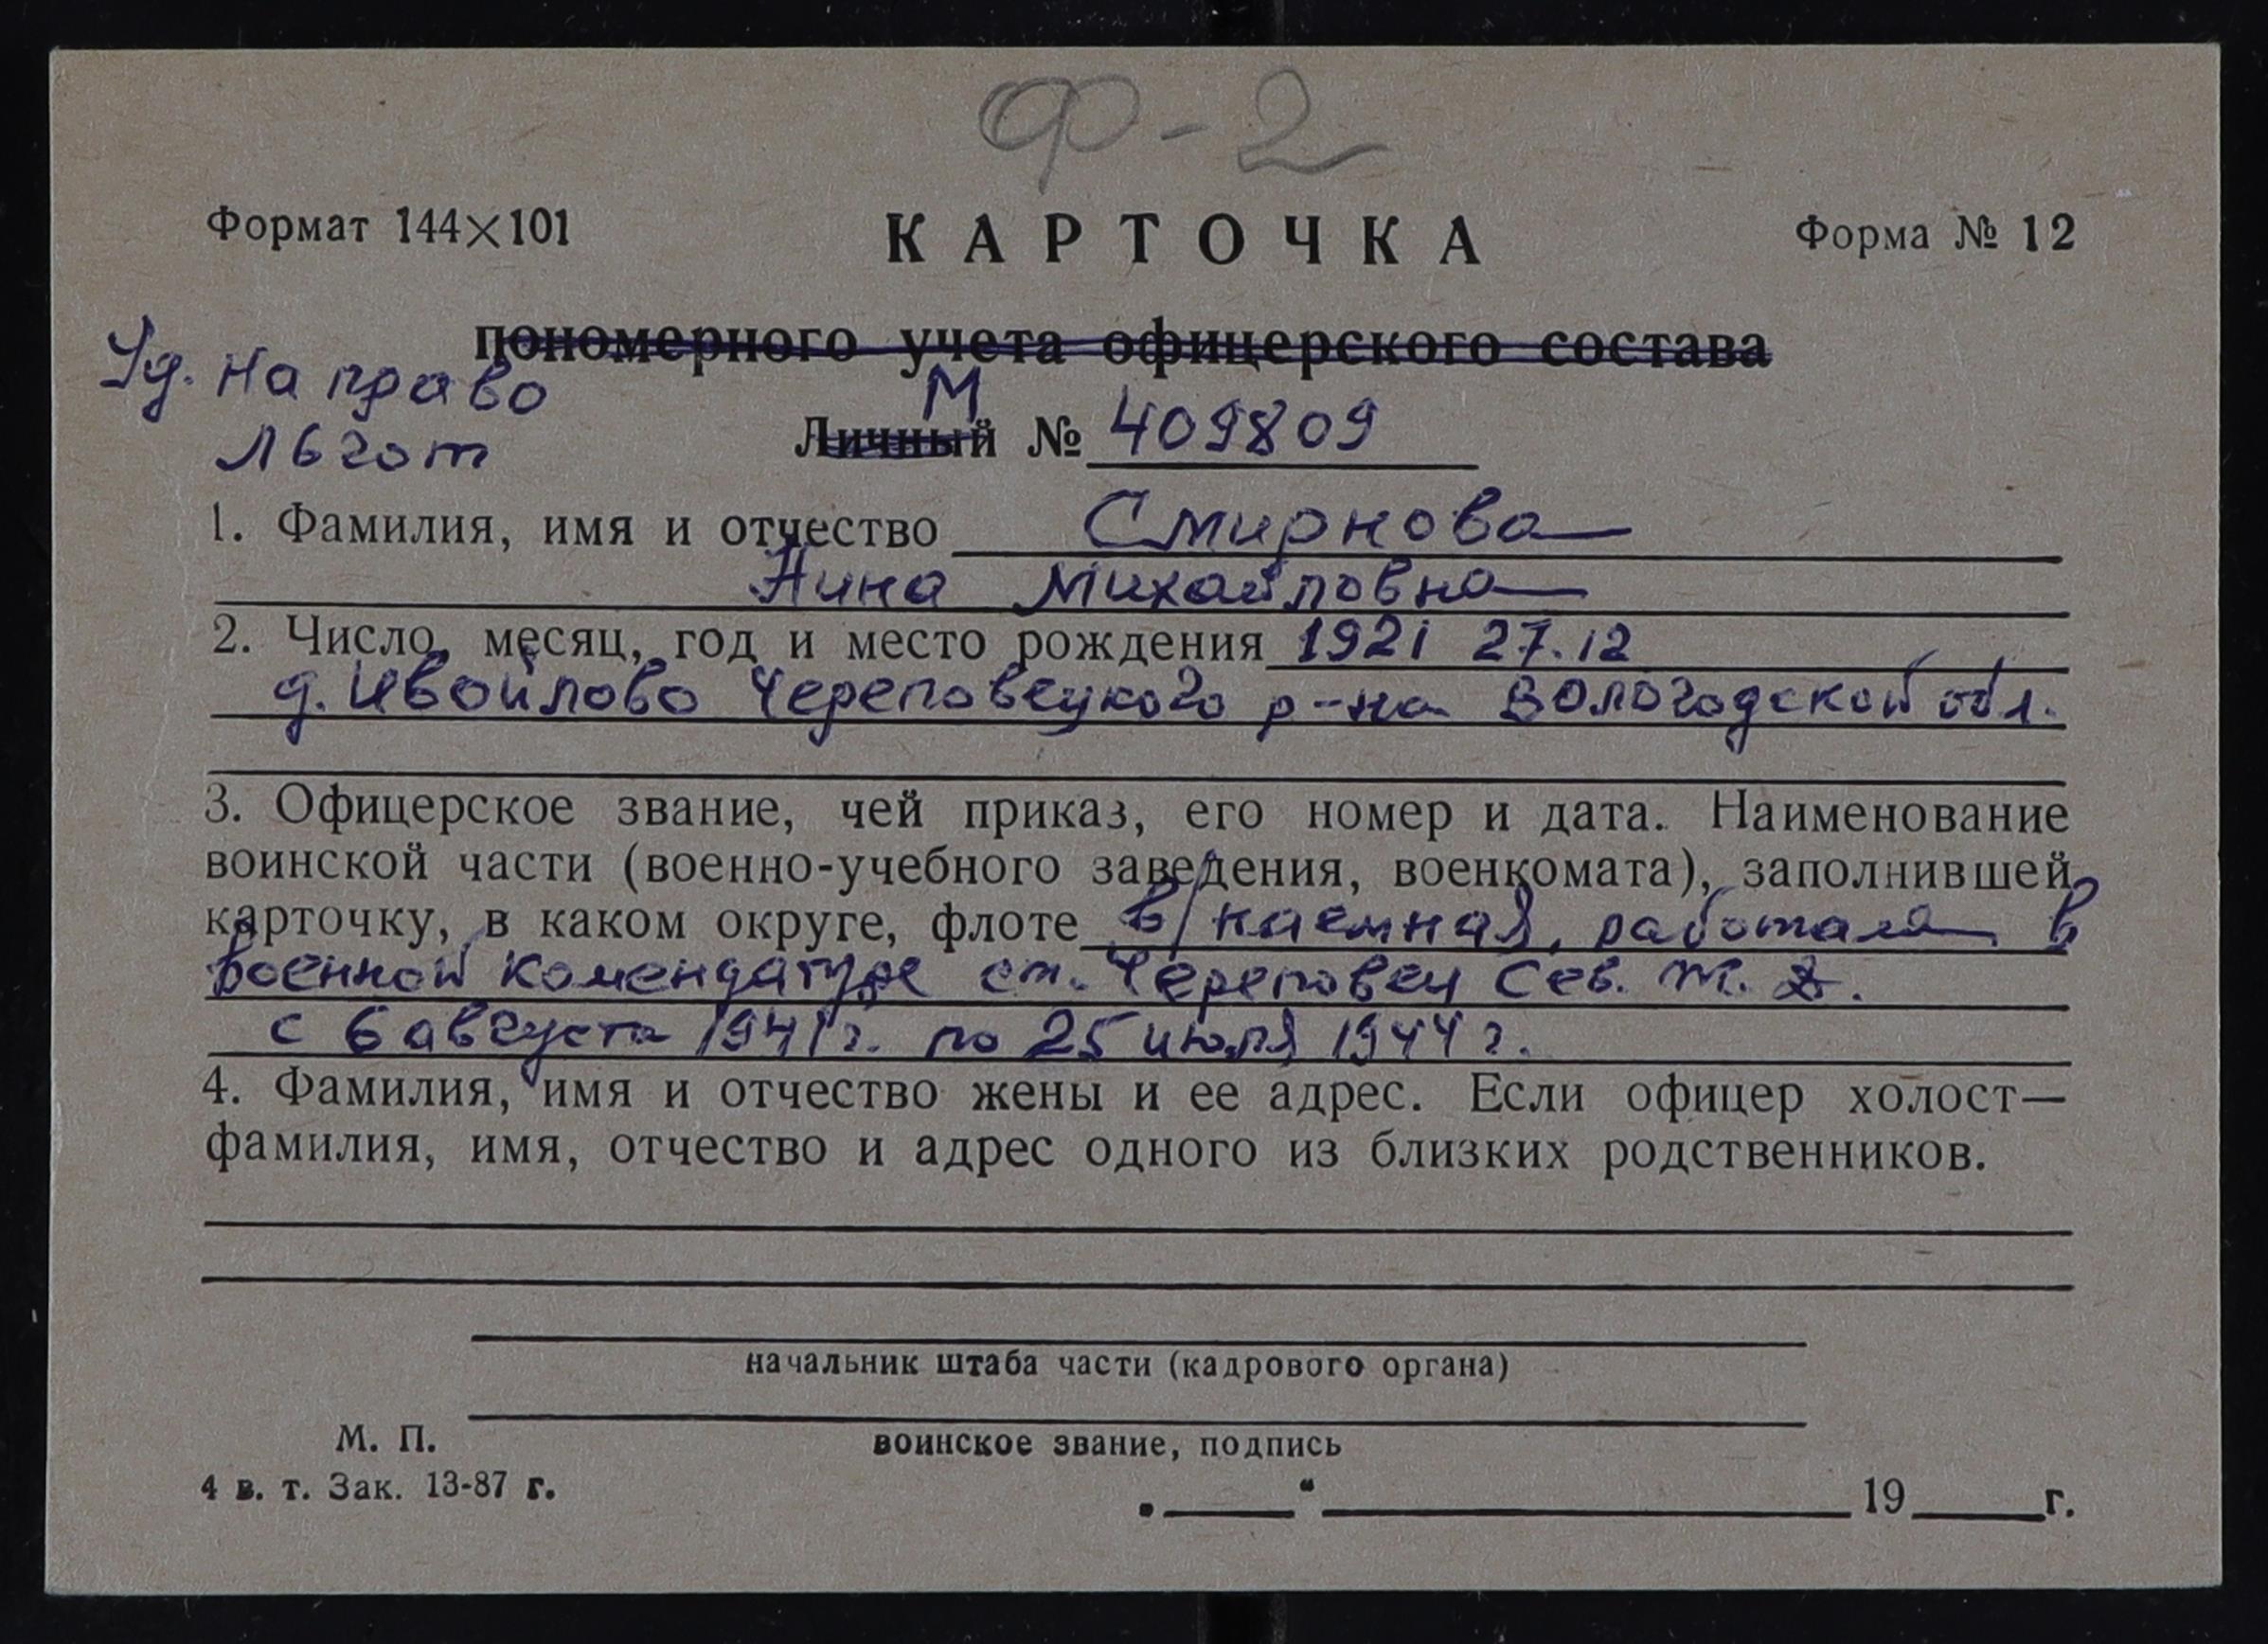 Ф-2
Формат 144×101 КАРТОЧКА Форма № 12
пономерного учета офицерского состава
Уд. на право
льгот
М
Личный № 409809
1. Фамилия, имя и отчество Смирнова
Нина Михайловна
2. Число, месяц, год и место рождения 1921 27.12
д. Ивойлово Череповецкого р-на Вологодской обл.
3. Офицерское звание, чей приказ, его номер и дата. Наименование
воинской части (военно-учебного заведения, военкомата), заполнившей
карточку, в каком округе, флоте в/наемная, работала в
военной комендатуре ст. Череповец Сев. ж. д.
с 6 августа 1941 г. по 25 июля 1944 г.
4. Фамилия, имя и отчество жены и ее адрес. Если офицер холост—
фамилия, имя, отчество и адрес одного из близких родственников.
начальник штаба части (кадрового органа)
М. П.
воинское звание, подпись
4 в. т. Зак. 13-87 г.
„ “ 19 г.